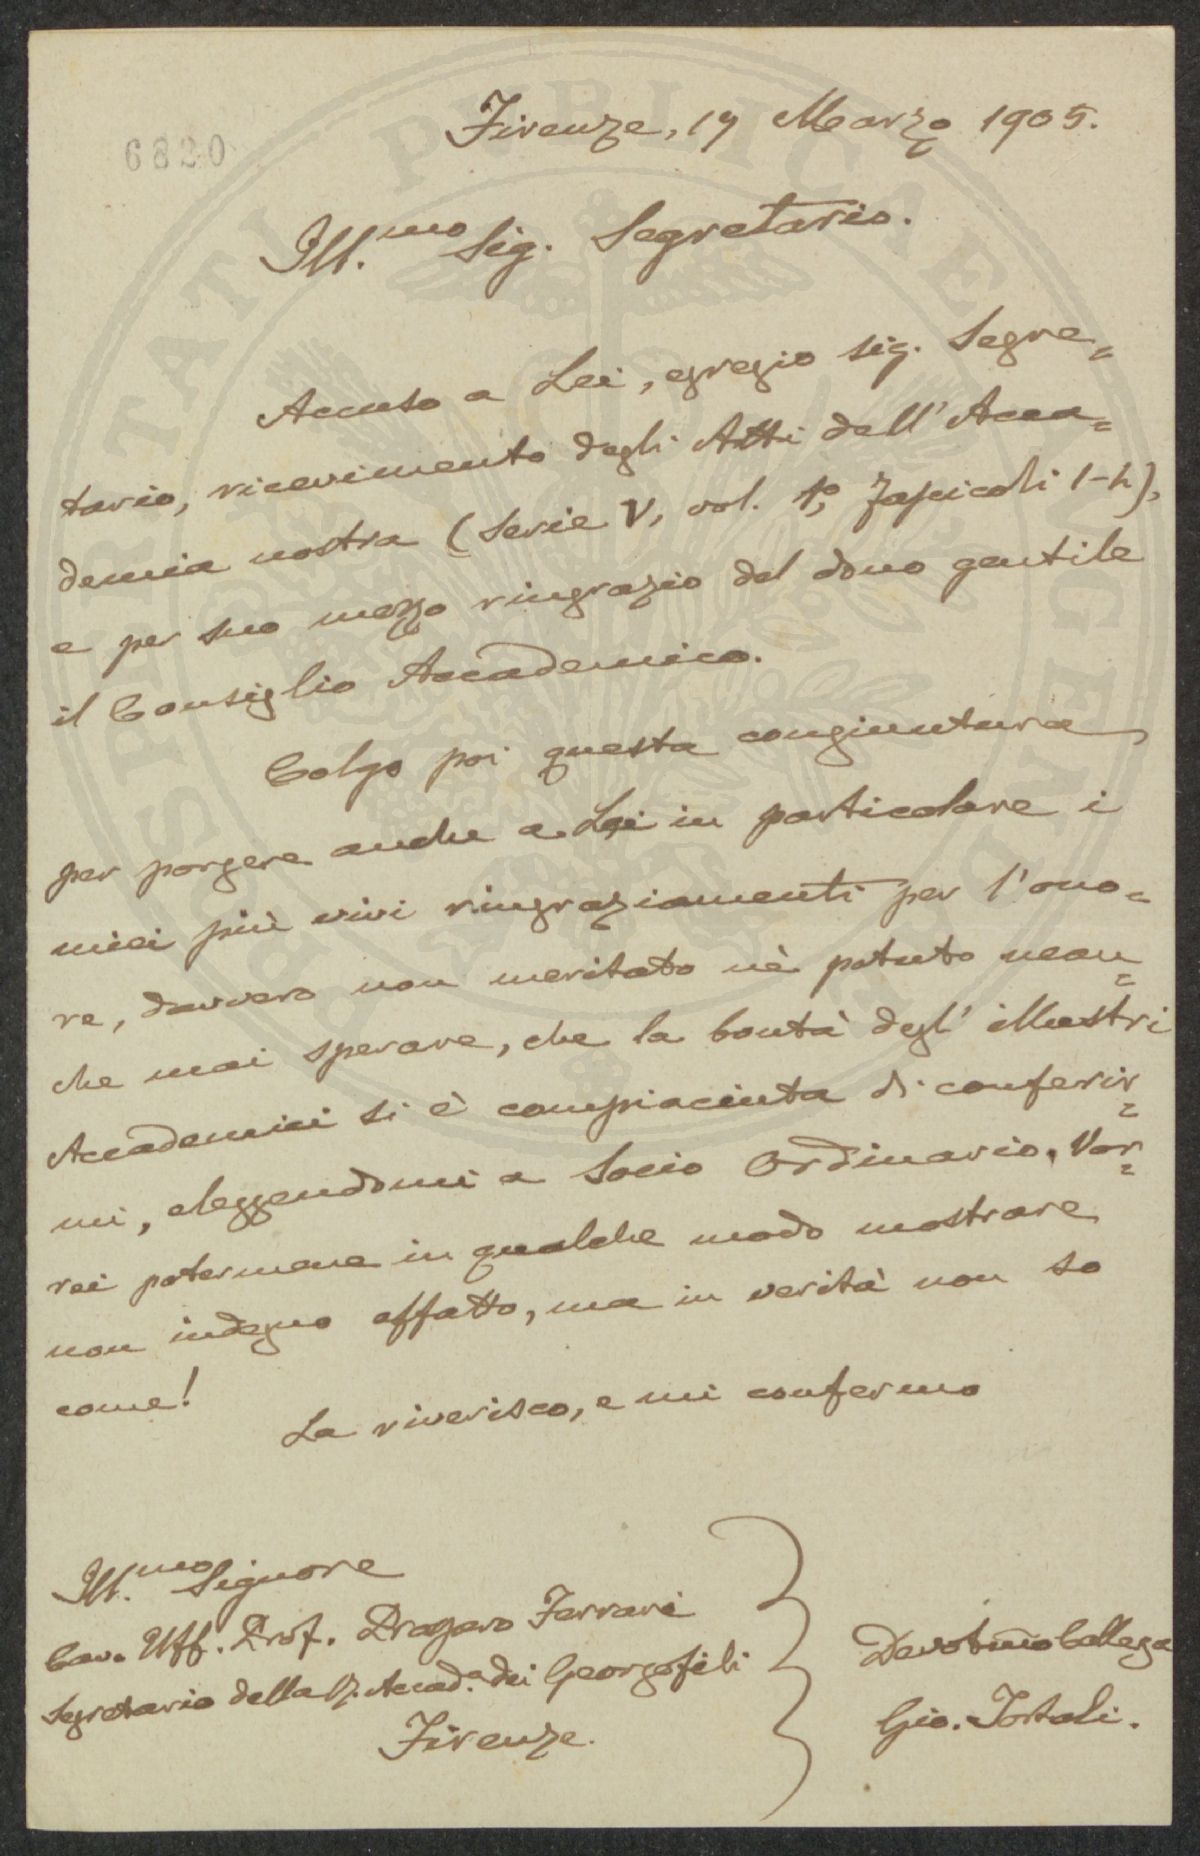 6820
Firenze, 19 Marzo 1905.
Ill.mo Sig. Segretario.
Accuso a Lei, egregio sig. Segre=
tario, ricevimento degli Atti dell' Acca=
demia nostra (Serie V, vol. 1º, fascicoli 1-2),
e per suo mezzo ringrazio del dono gentile
il Consiglio Accademico.
Colgo poi questa congiuntura
per porgere anche a Lei in particolare i
miei più vivi ringraziamenti per l'ono=
re, davvero non meritato nè potuto nean=
che mai sperare, che la bontà degl' illustri
Accademici si è compiaciuta di conferir=
mi, eleggendomi a Socio Ordinario. Vor=
rei potermene in qualche modo mostrare
non indegno affatto, ma in verità non so
come!
La riverisco, e mi confermo
Ill.mo Signore
Cav. Uff. Prof. Ferrari
Segretario della R. Accad.a dei Georgofili
Firenze.
Devotmo Collega
Gio. Tortoli.
PROSPERITATI PUBLICAE AUGENDAE